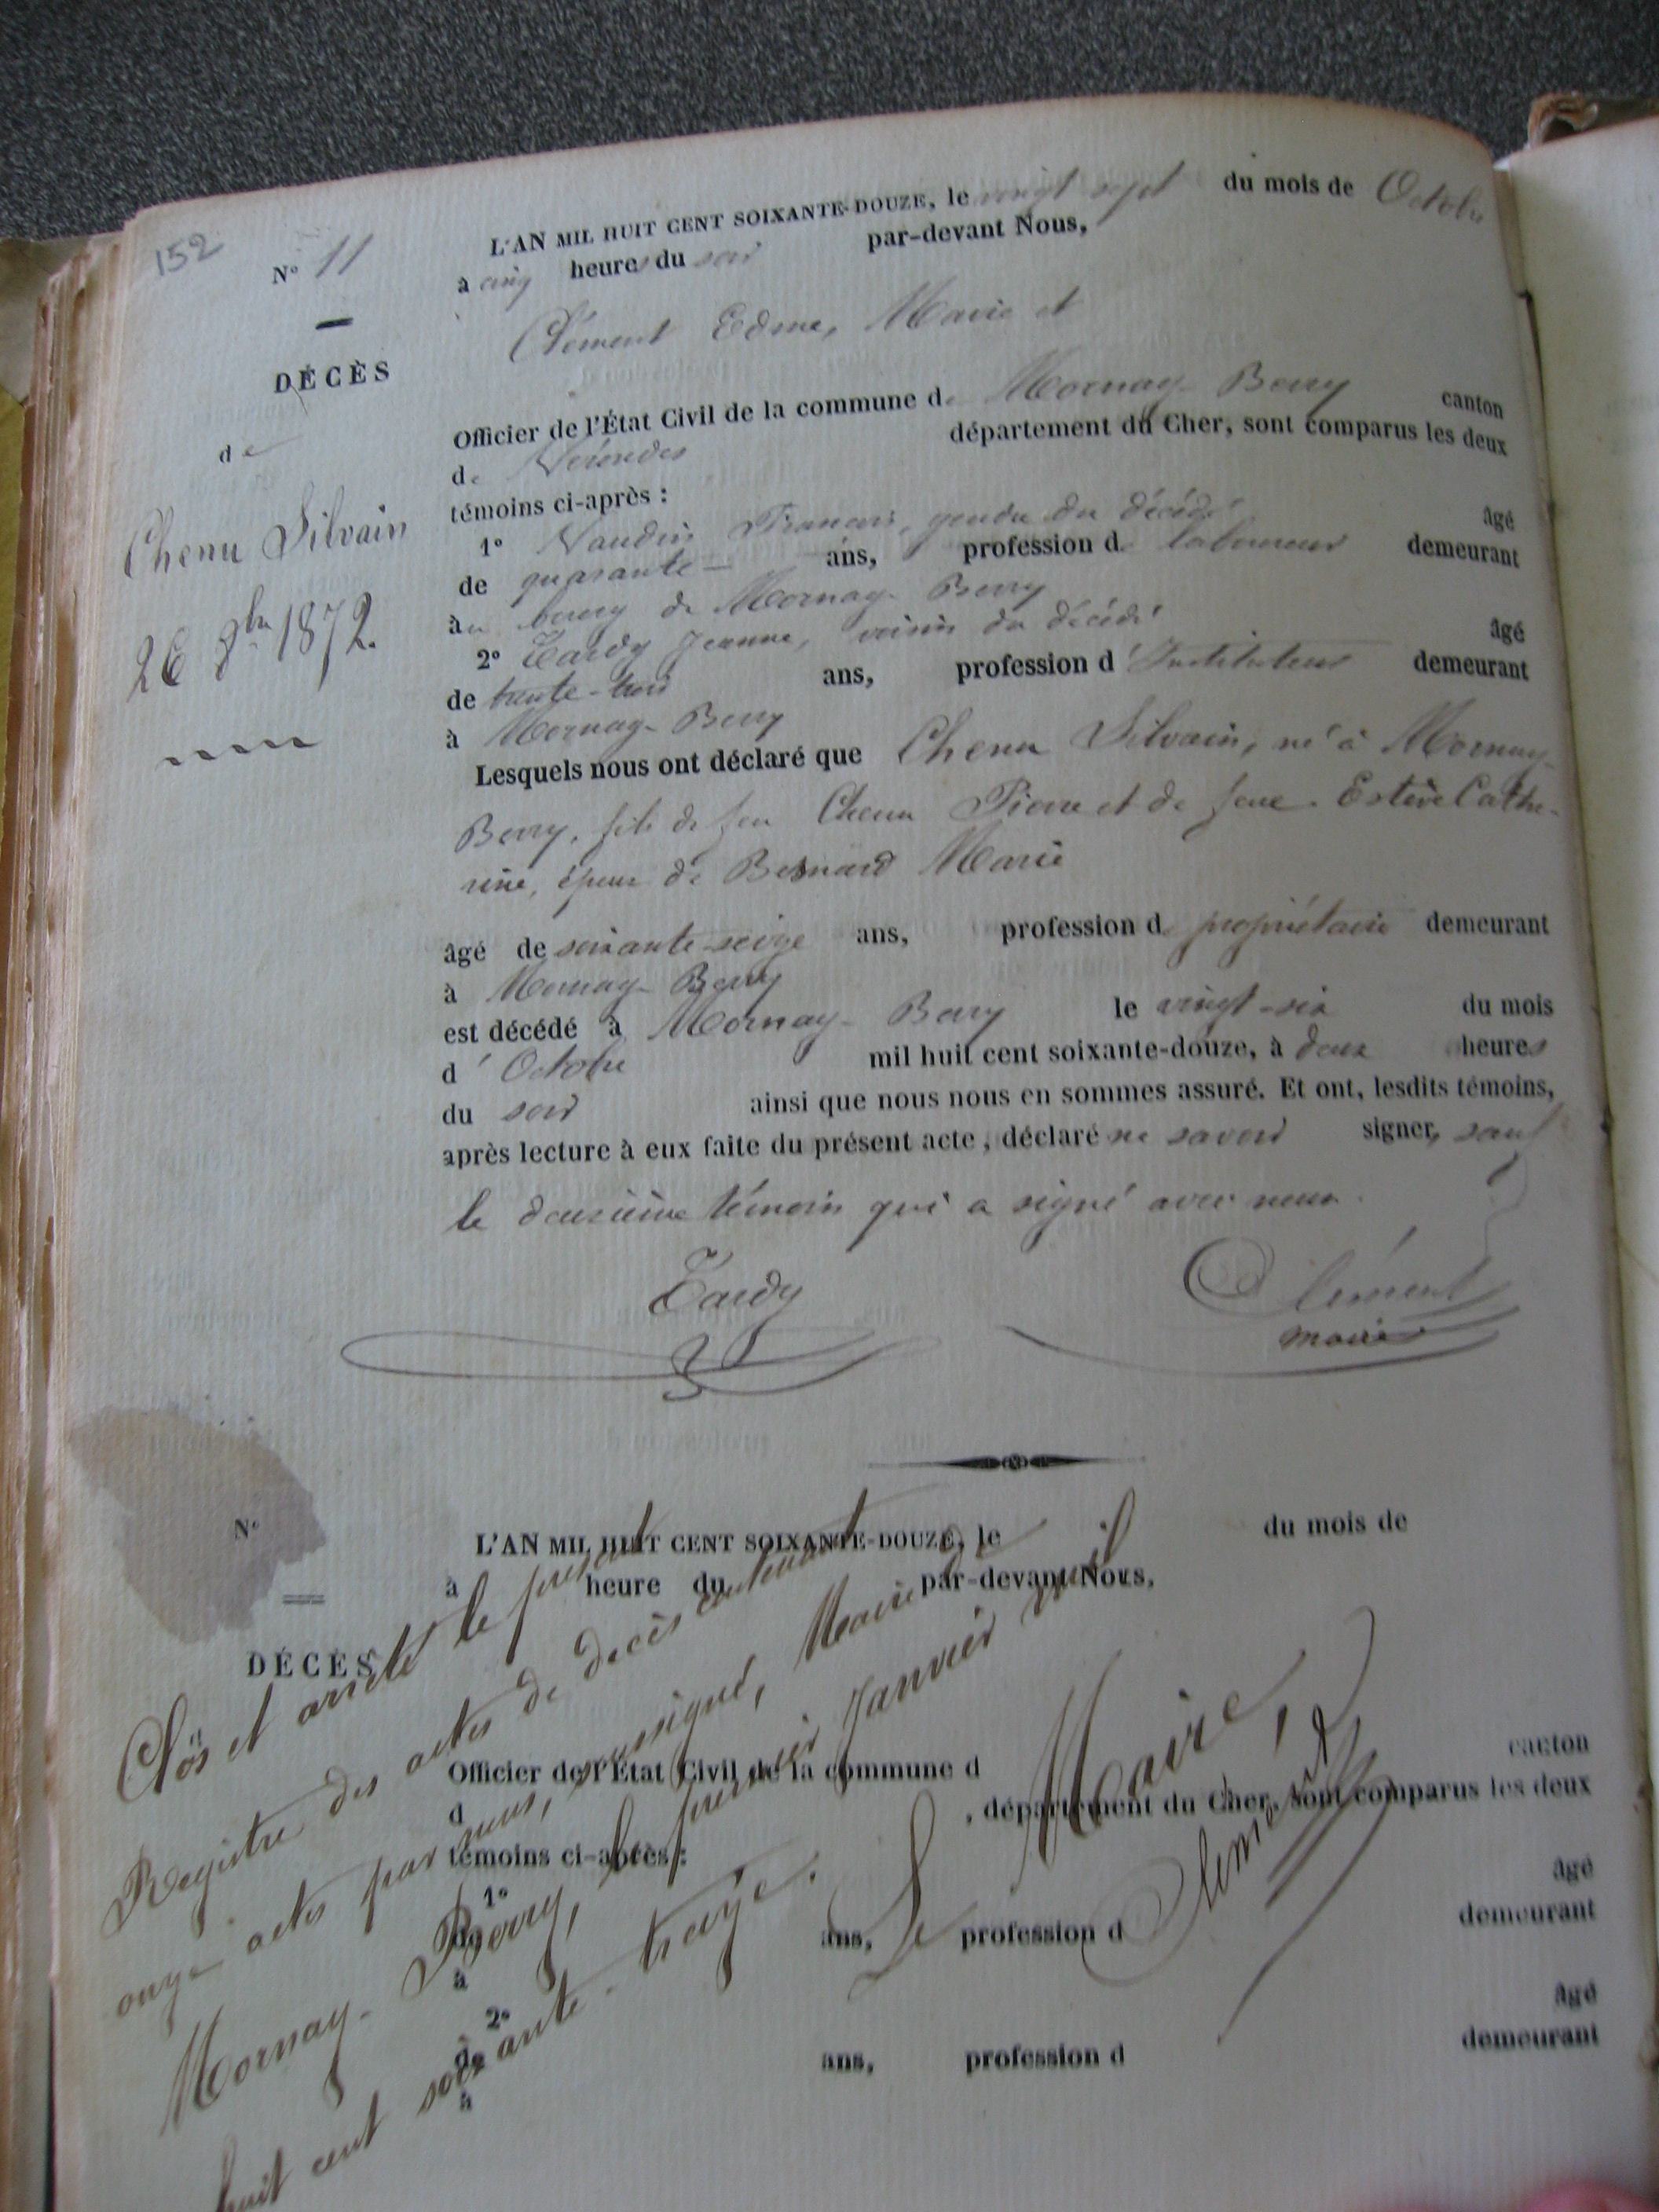 152
N° 11
DÉCÈS
de
Chenu Silvain
26 8bre 1872.
L'AN MIL HUIT CENT SOIXANTE-DOUZE, le vingt sept du mois de Octobre
à cinq heures du soir par-devant Nous,
Clément Edme, Maire et
Officier de l'État Civil de la commune de Mornay-Berry canton
de Nérondes département du Cher, sont comparus les deux
témoins ci-après :
1° Vaudin Francois, gendre du décédé âgé
de quarante ans, profession de laboureur demeurant
au bourg de Mornay-Berry
2° Tardy Jeanne, voisin du décédé âgé
de trente-trois ans, profession d'Instituteur demeurant
à Mornay-Berry
Lesquels nous ont déclaré que Chenu Silvain, né à Mornay-
Berry, fils de feu Chenu Pierre et de feue Estève Cathe-
rine, époux de Besnard Marie
âgé de soixante-seize ans, profession de propriétaire demeurant
à Mornay-Berry
est décédé à Mornay-Berry le vingt-six du mois
d'Octobre mil huit cent soixante-douze, à deux heures
du soir ainsi que nous nous en sommes assuré. Et ont, lesdits témoins,
après lecture à eux faite du présent acte, déclaré ne savoir signer, sauf
le deuxième témoin qui a signé avec nous.
Tardy Clément
maire
N°
DÉCÈS
L'AN MIL HUIT CENT SOIXANTE-DOUZE, le du mois de
à heure du par-devant Nous,
Officier de l'État Civil de la commune d canton
d , département du Cher, sont comparus les deux
témoins ci-après :
1° âgé
de ans, profession d demeurant
à
2° âgé
de ans, profession d demeurant
à
Clos et arrêté le présent
Registre des actes de décès contenant
onze actes par nous, soussigné, Maire de
Mornay-Berry, le premier Janvier mil
huit cent soixante-treize.
Le Maire,
Clément